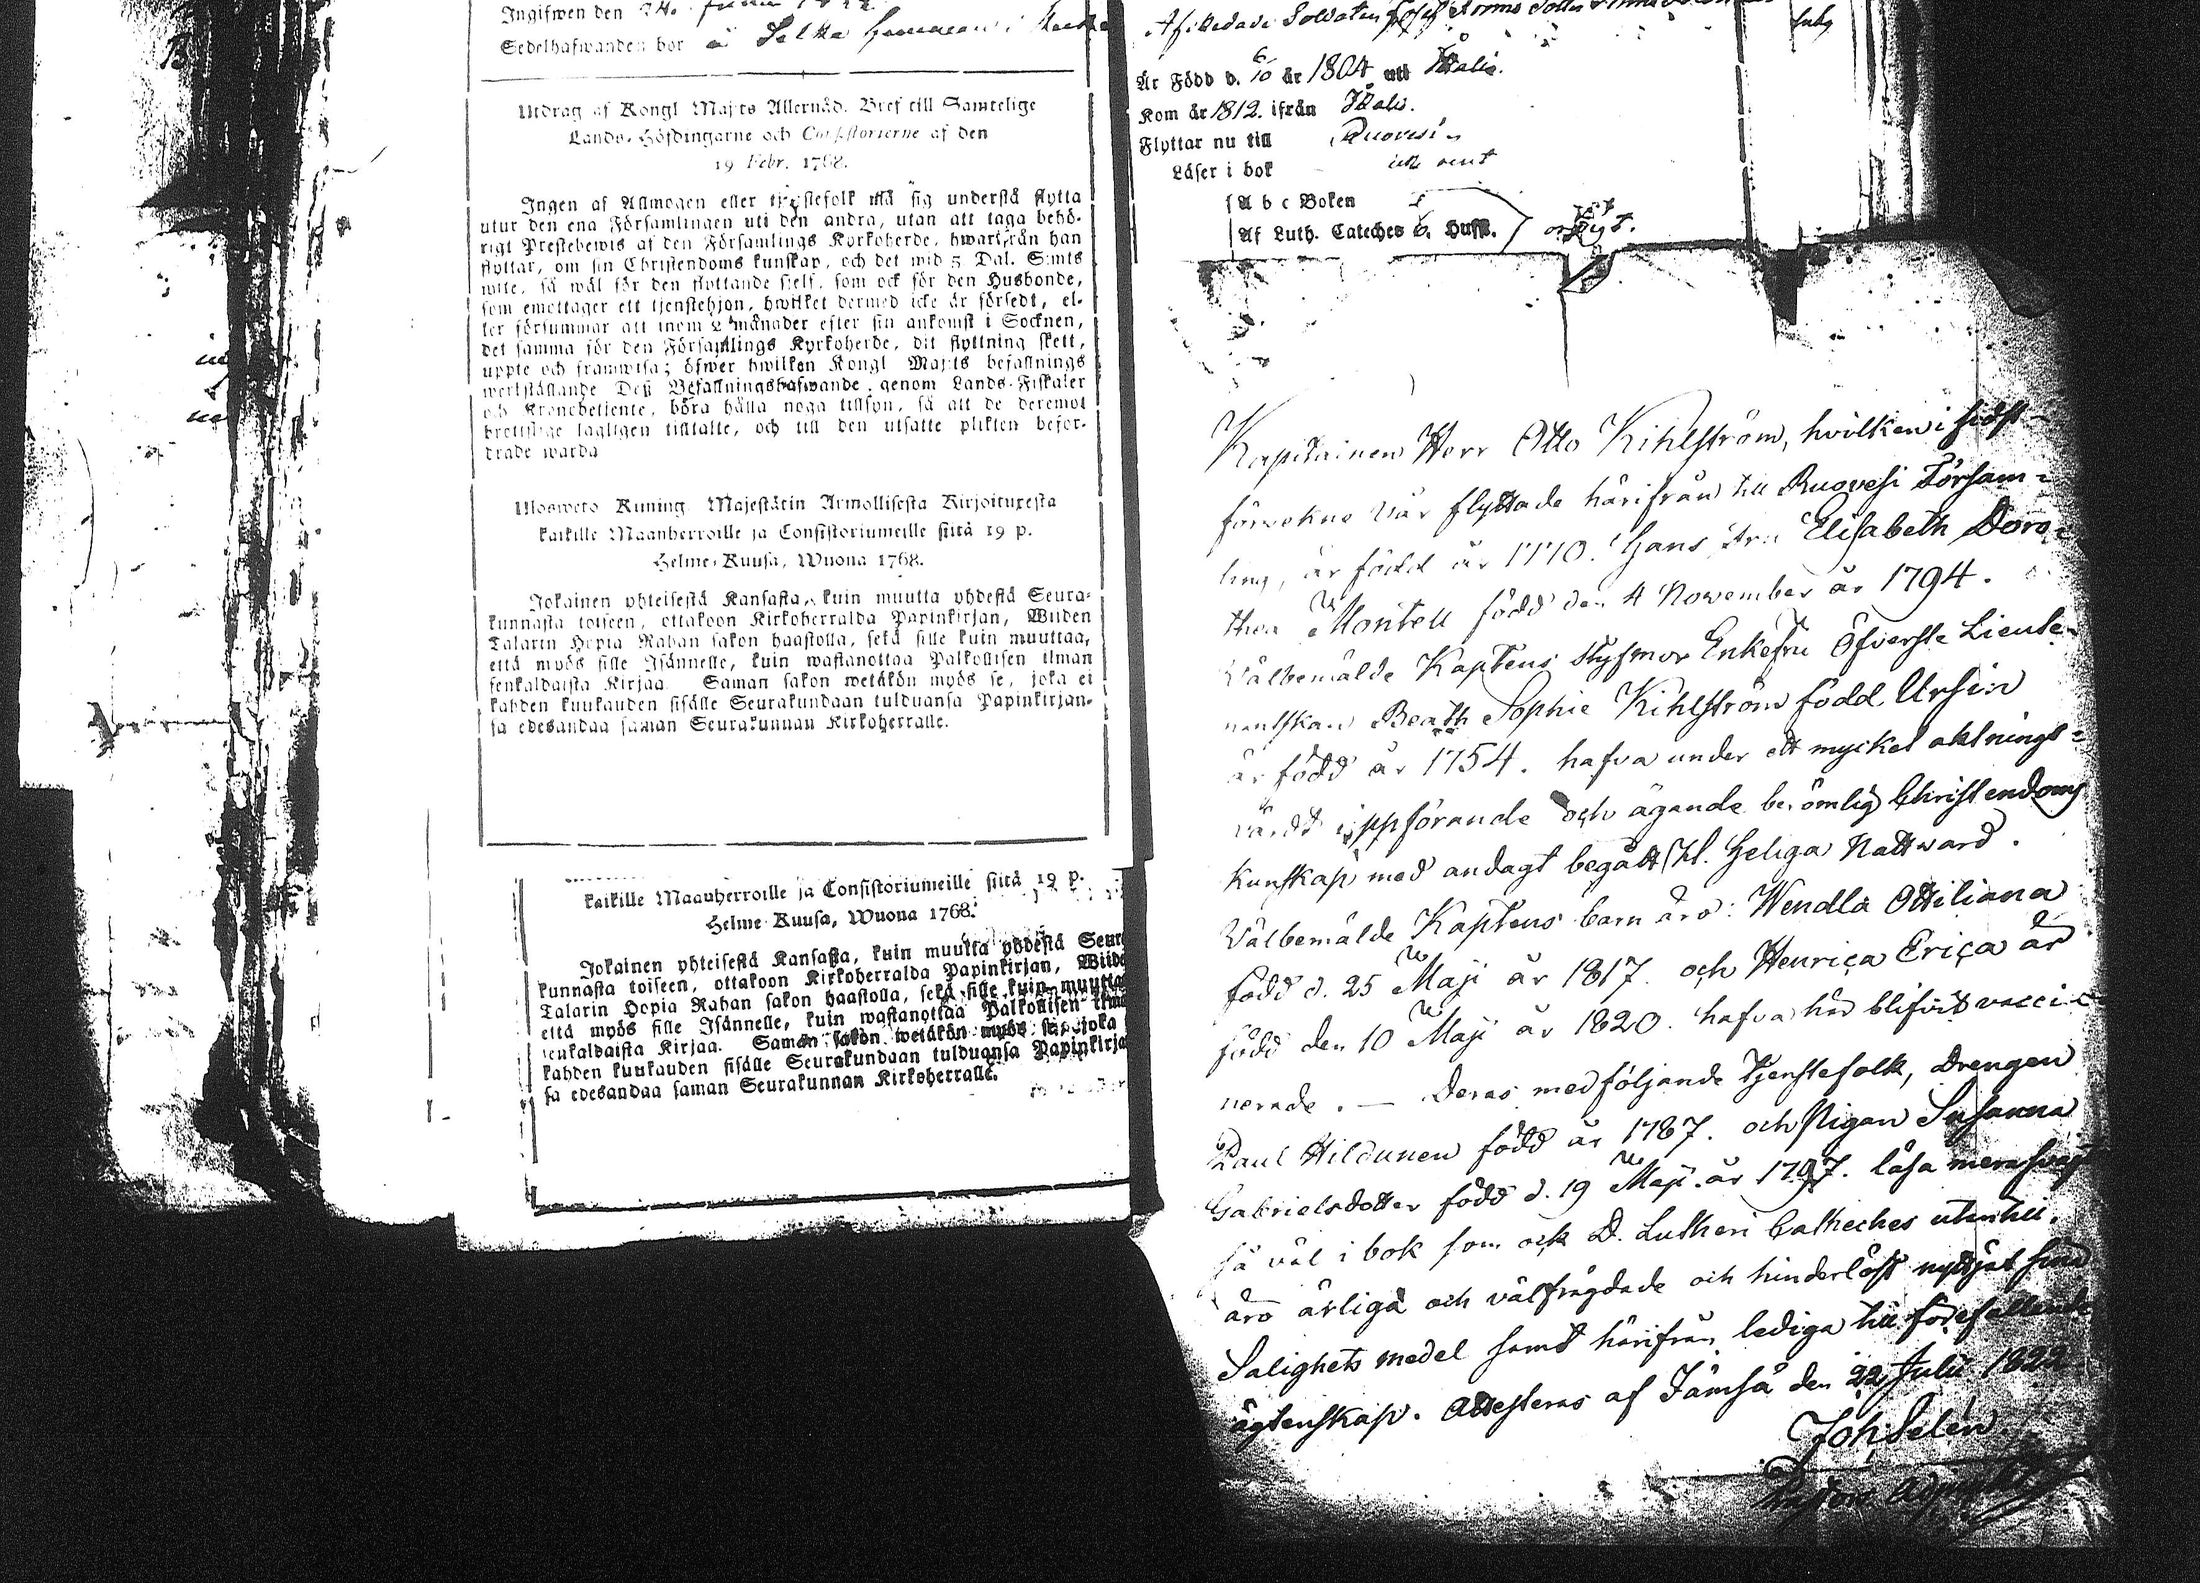 Ingifwen den 24. Junii
Sedelhafwanden bor
Utdrag af Kongl Maj:ts Allernåd. Bref till Samtelige
Lands-Höfdingarne och Consistorierne af den
19 Febr. 1768.
Ingen af Allmogen eller tjenstefolk må sig understå flytta
utur den ena Församlingen uti den andra, utan att taga behö-
rigt Prestebewis af den Församlings Kyrkoherde, hwarifrån han
flyttar, om sin Christendoms kunskap, och det wid 5 Dal. S:mts
wite, så wäl för den flyttande sjelf, som ock för den Husbonde,
som emottager ett tjenstehjon, hwilket dermed icke är försedt, el-
ler försummar att inom 2 månader efter sin ankomst i Socknen,
det samma för den Församlings Kyrkoherde, dit flyttning skett,
uppte och framwisa; öfwer hwilken Kongl Maj:ts befallnings
werkställande Deß Befallningshafwande, genom Lands-Fiskaler
och Kronobetjente, böra hålla noga tillsyn, så att de deremot
brottslige lagligen tilltalte, och till den utsatte plikten befor-
drade warda
Uloswето Kuning. Majestätin Armollisesta Kirjoituxesta
kaikille Maanherroille ja Consistoriumeille siitä 19 p.
Helme-Kuusa, Wuona 1768.
Jokainen yhteisestä Kansasta, kuin muutta yhdestä Seura-
kunnasta toiseen, ottakoon Kirkoherralda Papinkirjan, Wiiden
Talarin Hopia Rahan sakon haastolla, sekä sille kuin muuttaa,
että myös sille Isännelle, kuin wastanottaa Palkollisen ilman
senkaldaista Kirjaa. Saman sakon wetäkön myös se, joka ei
kahden kuukauden sisälle Seurakundaan tulduansa Papinkirjan-
sa edesandaa saman Seurakunnan Kirkoherralle.
kaikille Maanherroille ja Consistoriumeille siitä 19 p.
Helme-Kuusa, Wuona 1768.
Jokainen yhteisestä Kansasta, kuin muutta yhdestä Seur
kunnasta toiseen, ottakoon Kirkoherralda Papinkirjan, Wiid
Talarin Hopia Rahan sakon haastolla, sekä sille kuin muutta
että myös sille Isännelle, kuin wastanottaa Palkollisen ilm
senkaldaista Kirjaa. Saman sakon wetäkön myös se, joka
kahden kuukauden sisälle Seurakundaan tulduansa Papinkirja
sa edesandaa saman Seurakunnan Kirkoherralle.
Afskedade Soldaten
Är Född d. 6/10 år 1804 uti Itkalis.
Kom år 1812. ifrån Itkalis.
Flyttar nu till Ruovesi
Läser i bok
A b c Boken
Af Luth. Cateches 6. Hufs.
Kapitainen Herr Otto Kihlström, hvilken i sidst-
förvekne vår flyttade härifrån till Ruovesi Försam-
ling, är född år 1770. Hans Fru Elisabeth Doro-
thea Montell född den 4 November år 1794.
Välbemälde Kaptens Stufmor Enkefru Öfverste Lieute-
nantskan Beath Sophie Kihlström född Ursin
är född år 1754. hafva under ett mycket aktnings-
värdt uppförande och ägande berömlig Christendoms
kunskap med andagt begått H. Heliga Nattvard.
Välbemälde Kaptens barn äro: Wendla Ottiliana
född d. 25 Maji år 1817. och Henrica Erica är
född den 10 Maji år 1820. hafva här blifvit vacci-
nerade. — Deras medföljande Tjenstefolk, Drengen
Paul Hildunen född år 1787. och Pigan Susanna
Gabrielsdotter född d. 19 Maji år 1797. läsa
så väl i bok som ock D. Lutheri Catheches utantill.
äro ärliga och välfrägdade och hinderlöst nyttjat sina
Salighets medel samt härifrån lediga till förefallande
ägtenskap. Attesteras af Jämsä den 22 Julii 1822
Joh. Selén
Pastors Adjunct